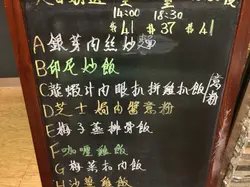 14:00 18:30
#41 #37 #41
A銀芽肉絲炒麵
B印尼炒飯
C菠蘿汁肉眼扒拼雞扒飯/意粉
D芝士焗肉醬意粉
E梅子蒸排骨飯
F咖喱雞飯
G梅菜扣肉飯
H沙薑雞飯